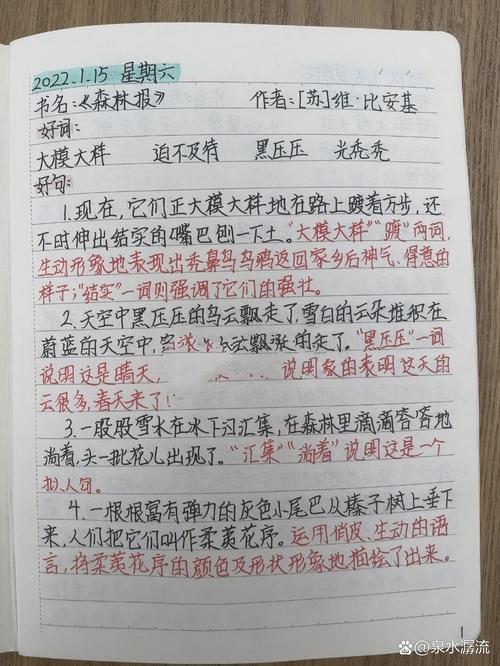 2022.1.15 星期六
书名:《森林报》 作者:[苏]维·比安基
好词:
大模大样 迫不及待 黑压压 光秃秃
好句:
1.现在,它们正大模大样地在路上踱着方步,还
不时伸出结实的嘴巴刨一下土。"大模大样""踱"两词,
生动形象地表现出秃鼻乌鸦返回家乡后神气、得意的
样子;"结实"一词则强调了它们的强壮。
2.天空中黑压压的乌云飘走了,雪白的云朵堆积在
蔚蓝的天空中,
的走了。"黑压压"一词
说明这是晴天, 说明象的表明这天的
云很多,春天来了!
3.一股股雪水在冰下汇集,在森林里滴滴答答地
淌着,头一批花儿出现了。"汇集""淌着"说明这是一个
拟人句。
4.一根根富有弹力的灰色小尾巴从榛子树上垂下
来,人们把它们叫作柔荑花序。运用俏皮、生动的语
言,将柔荑花序的颜色及形状形象地描绘了出来。
1
百家号/泉水潺流